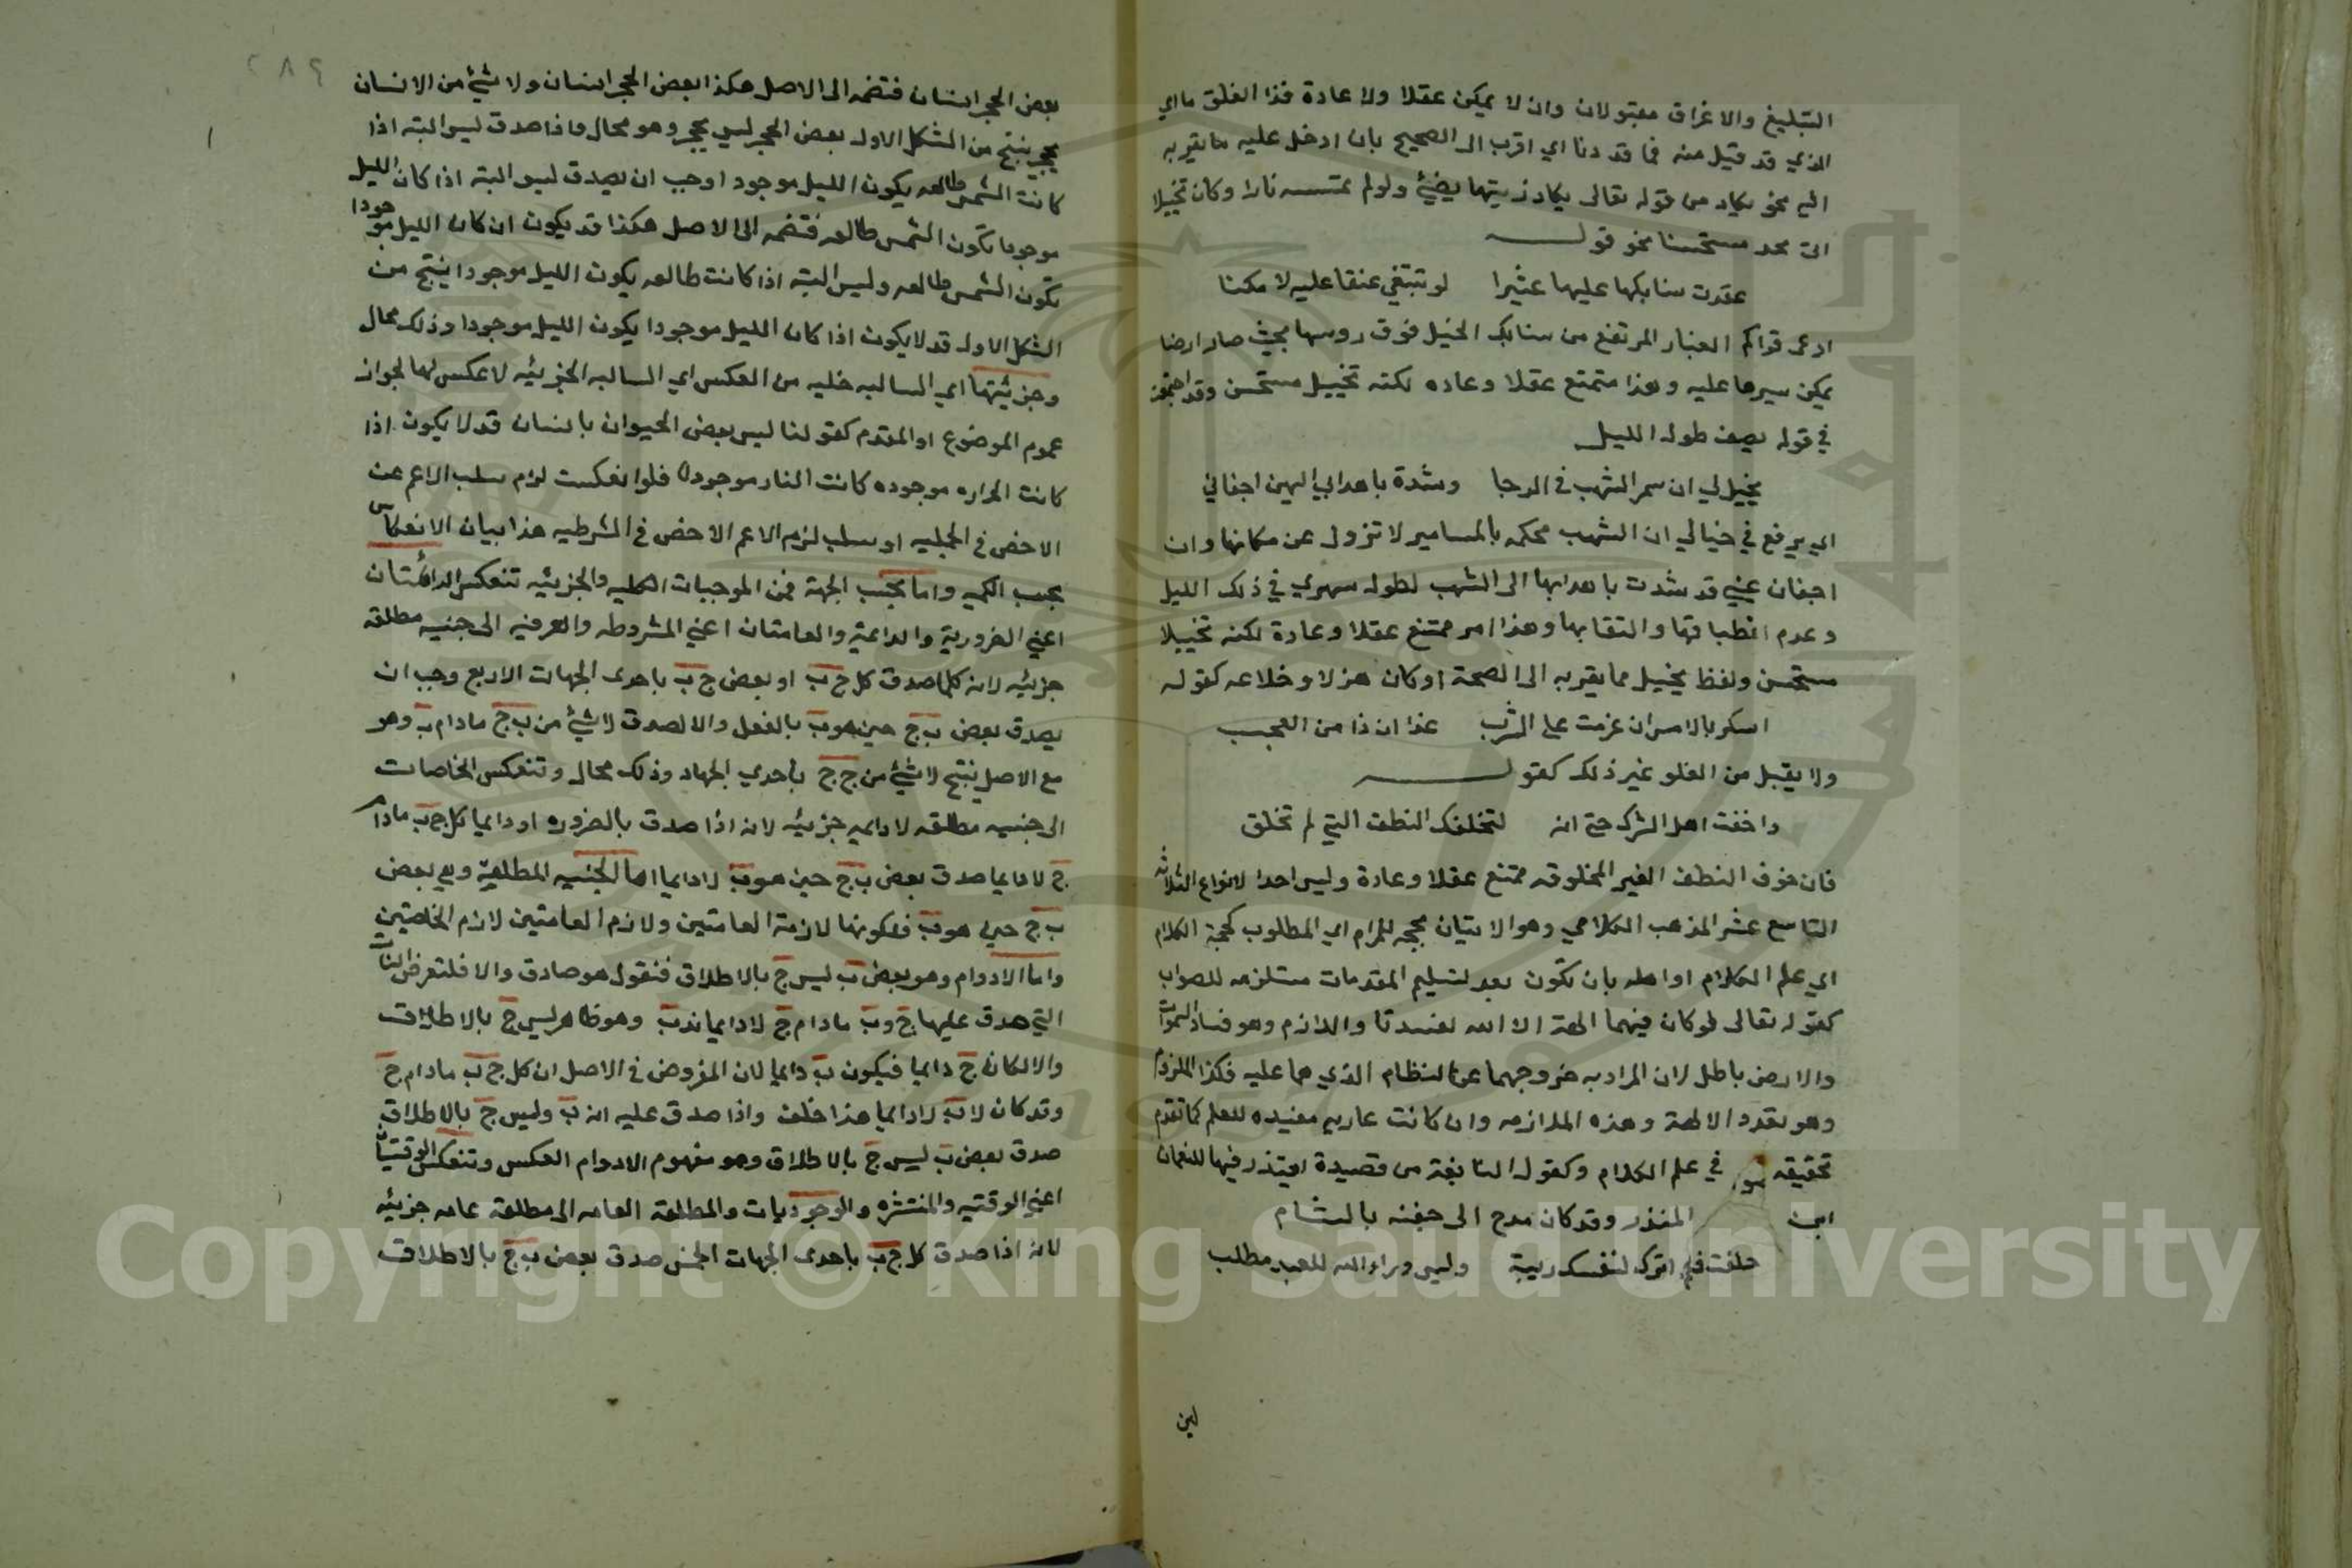 التبليغ والاغراق مقبولان وان لا يمكن عقلا ولا عادة فذا الغلو ما اي
الذي قد قبل منه فما قد دنا اي اقرب الى الصحيح بان ادخل عليه ما يقربه
اليه نحو يكاد من قوله تعالى يكاد زيتها يضيئ ولو لم تمسسه نارا وكان تخييلا
اتى محد مستحسنا نحو قولـــه
عقدت سنابكها عليها عثيرا لو تبتغي عنقا عليه لامكنا
ادعى تراكم الغبار المرتفع من سنابك الخيل فوق روسها بحيث صار ارضا
يمكن سيرها عليه وهذا متمتع عقلا وعاده لكنه تخييل مستحسن وقد اجتمعا
في قوله يصف طول الليل
يخيل لي ان سمر الشهب في الدجا وشدة باهدابي اليهن اجفاني
اي يرفع في خيالي ان الشهب محكمه بالمسامير لا تزول عن مكانها وان
اجفان عيني قد شدت باهدابها الى الشهب لطول سهري في ذلك الليل
وعدم انطباقها والتقابها وهذا امر ممتنع عقلا وعادة لكنه تخييلا
مستحسن ولفظ يخيل مما يقربه الى الصحة او كان هزلا وخلاعه كقوله
اسكر بالامس ان عزمت على الشرب غدا ان ذا من العجب
ولا يقبل من الغلو غير ذلك كقولـــه
واخفت اهل الشرك حتى انه لتخافك النطف التي لم تخلق
فان خوف النطف الغير المخلوقه ممتنع عقلا وعادة وليس احدا لانواع الثلاثه
التاسع عشر المذهب الكلامي وهو الاتيان بحجه للمرام اي المطلوب كحجة الكلام
اي علم الكلام او اهله بان تكون بعد تسليم المقدمات مستلزمه للصواب
كقوله تعالى لو كان فيهما الهة الا الله لفسدتا واللازم وهو فساد السموات
والارض باطل لان المراد به خروجهما عن النظام الذي هما عليه فكذا الملزوم
وهو تعدد الالهة وهذه الملازمه وان كانت عاديه مفيده للعلم كما تقدم
تحقيقه في علم الكلام وكقول النابغة من قصيدة اعتذر فيها للنعمان
ابن المنذر وقد كان مدح الى جفنه بالشام
حلفت فلم اترك لنفسك ريبة وليس وراء الله للعبد مطلب
لين
٢٨٩
بعض الحجر انسان فتضمه الى الاصل هكذا بعض الحجر انسان ولا شيئ من الانسان
بحجر ينتج من الشكل الاول بعض الحجر ليس بحجر وهو محال واذا صدق ليس البته اذا
كانت الشمس طالعه يكون الليل موجودا وجب ان يصدق ليس البته اذا كان الليل
موجودا تكون الشمس طالعه فتضمه الى الاصل هكذا قد يكون ان كان الليل موجودا
تكون الشمس طالعه وليس البته اذا كانت طالعه يكون الليل موجودا ينتج من
الشكل الاول قد لا يكون اذا كان الليل موجودا يكون الليل موجودا وذلك محال
وجزئيتها اي السالبه خليه من العكس اي السالبه الجزئيه لا عكس لها لجواز
عموم الموضوع او المقدم كقولنا ليس بعض الحيوان بانسان قد لا يكون اذا
كانت الحراره موجوده كانت النار موجودة فلو انعكست لزم سلب الاعم عن
الاخص في الحمليه او سلب لزوم الاعم الاخص في الشرطيه هذا بيان الانعكاس
بحسب الكميه واما بحسب الجهة فمن الموجبات الكليه والجزئيه تنعكس الدائمتان
اعني الضرورية والدائمة والعامتان اعني المشروطه والعرفيه الى حينيه مطلقه
جزئيه لانه كلما صدق كل ج ب او بعض ج ب باحدى الجهات الاربع وجب ان
يصدق بعض ب ج حين هو ب بالفعل والا لصدق لا شيئ من ب ج ما دام ب وهو
مع الاصل ينتج لا شيئ من ج ج باحدي الجهاد وذلك محال وتنعكس الخاصات
الى حينيه مطلقه لا دايمه جزئيه لانه اذا صدق بالضروره او دايما كل ج ب مادام
ج لا دايما صدق بعض ب ج حين هو ب لا دايما اما الحينيه المطلقة وهي بعض
ب ج حين هو ب فلكونها لازمة العامتين ولازم العامتين لازم الخاصتين
واما الادوام وهو بعض ب ليس ج بالاطلاق فنقول هو صادق والا فلتعرض الذات
التي صدق عليها ج و ب ما دام ج لا دايما فدب وهو ظاهر ليس ج بالاطلاق
والا لكان ج دايما فيكون ب دايما لان المفروض في الاصل ان كل ج ب مادام ج
وقد كان لا ب لا دايما هذا خلف واذا صدق عليه انه ب وليس ج بالاطلاق
صدق بعض ب ليس ج بالاطلاق وهو مفهوم الادوام العكس وتنعكس الوقتيتان
اعني الوقتيه والمنتشره والوجوديات والمطلقة العامه الى مطلقة عامه جزئيه
لانه اذا صدق كل ج ب باحدى الجهات الخمس صدق بعض ب ج بالاطلاق
Copyright © King Saud University